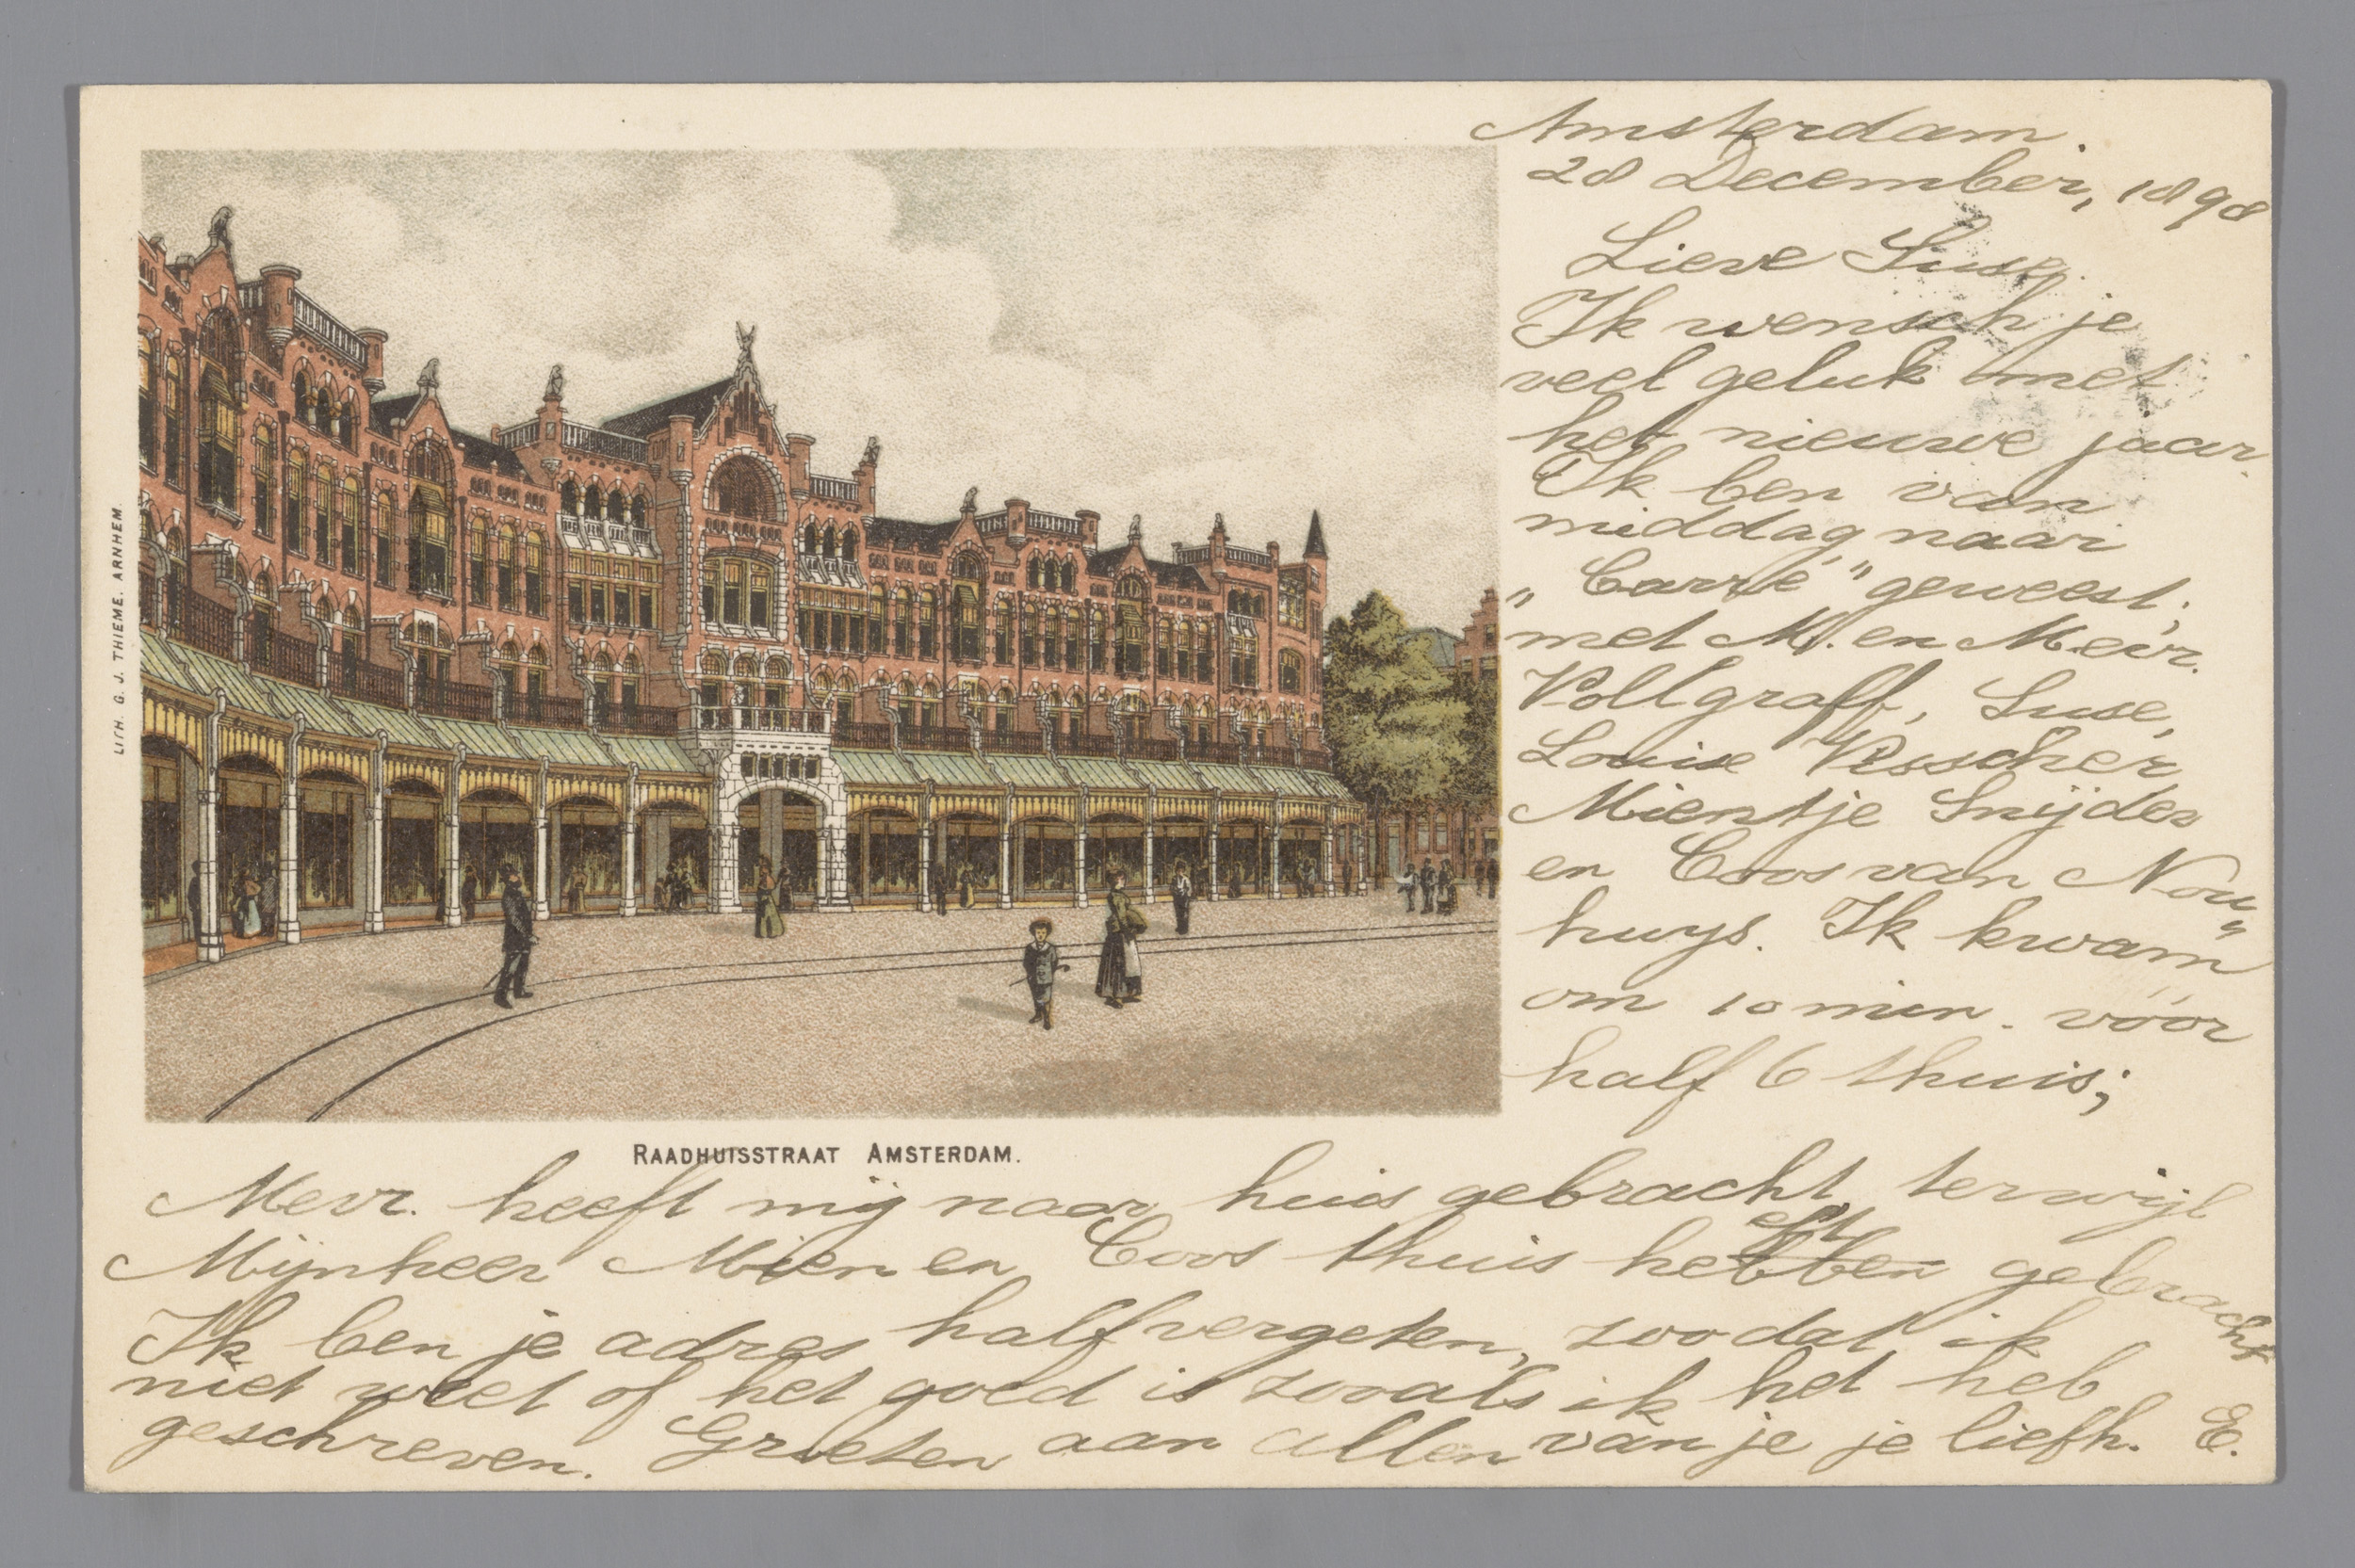 Amsterdam.
28 December, 1898
Lieve Suse,
Ik wensch je
veel geluk met
het nieuwe jaar.
Ik ben van
middag naar
„Carré” geweest,
met M. en Mevr.
Vollgraff, Suse,
Louise Visscher
Mientje Snijder
en Coos van Nou„
huys. Ik kwam
om 10 min. vóór
half 6 thuis;
LITH. G. J. THIEME. ARNHEM.
RAADHUISSTRAAT AMSTERDAM.
Mevr. heeft mij naar huis gebracht, terwijl
eft
Mijnheer Mien en Coos thuis hebben gebracht
Ik ben je adres half vergeten, zoodat ik
niet weet of het goed is zooals ik het heb
geschreven. Groeten aan allen van je je liefh. E.